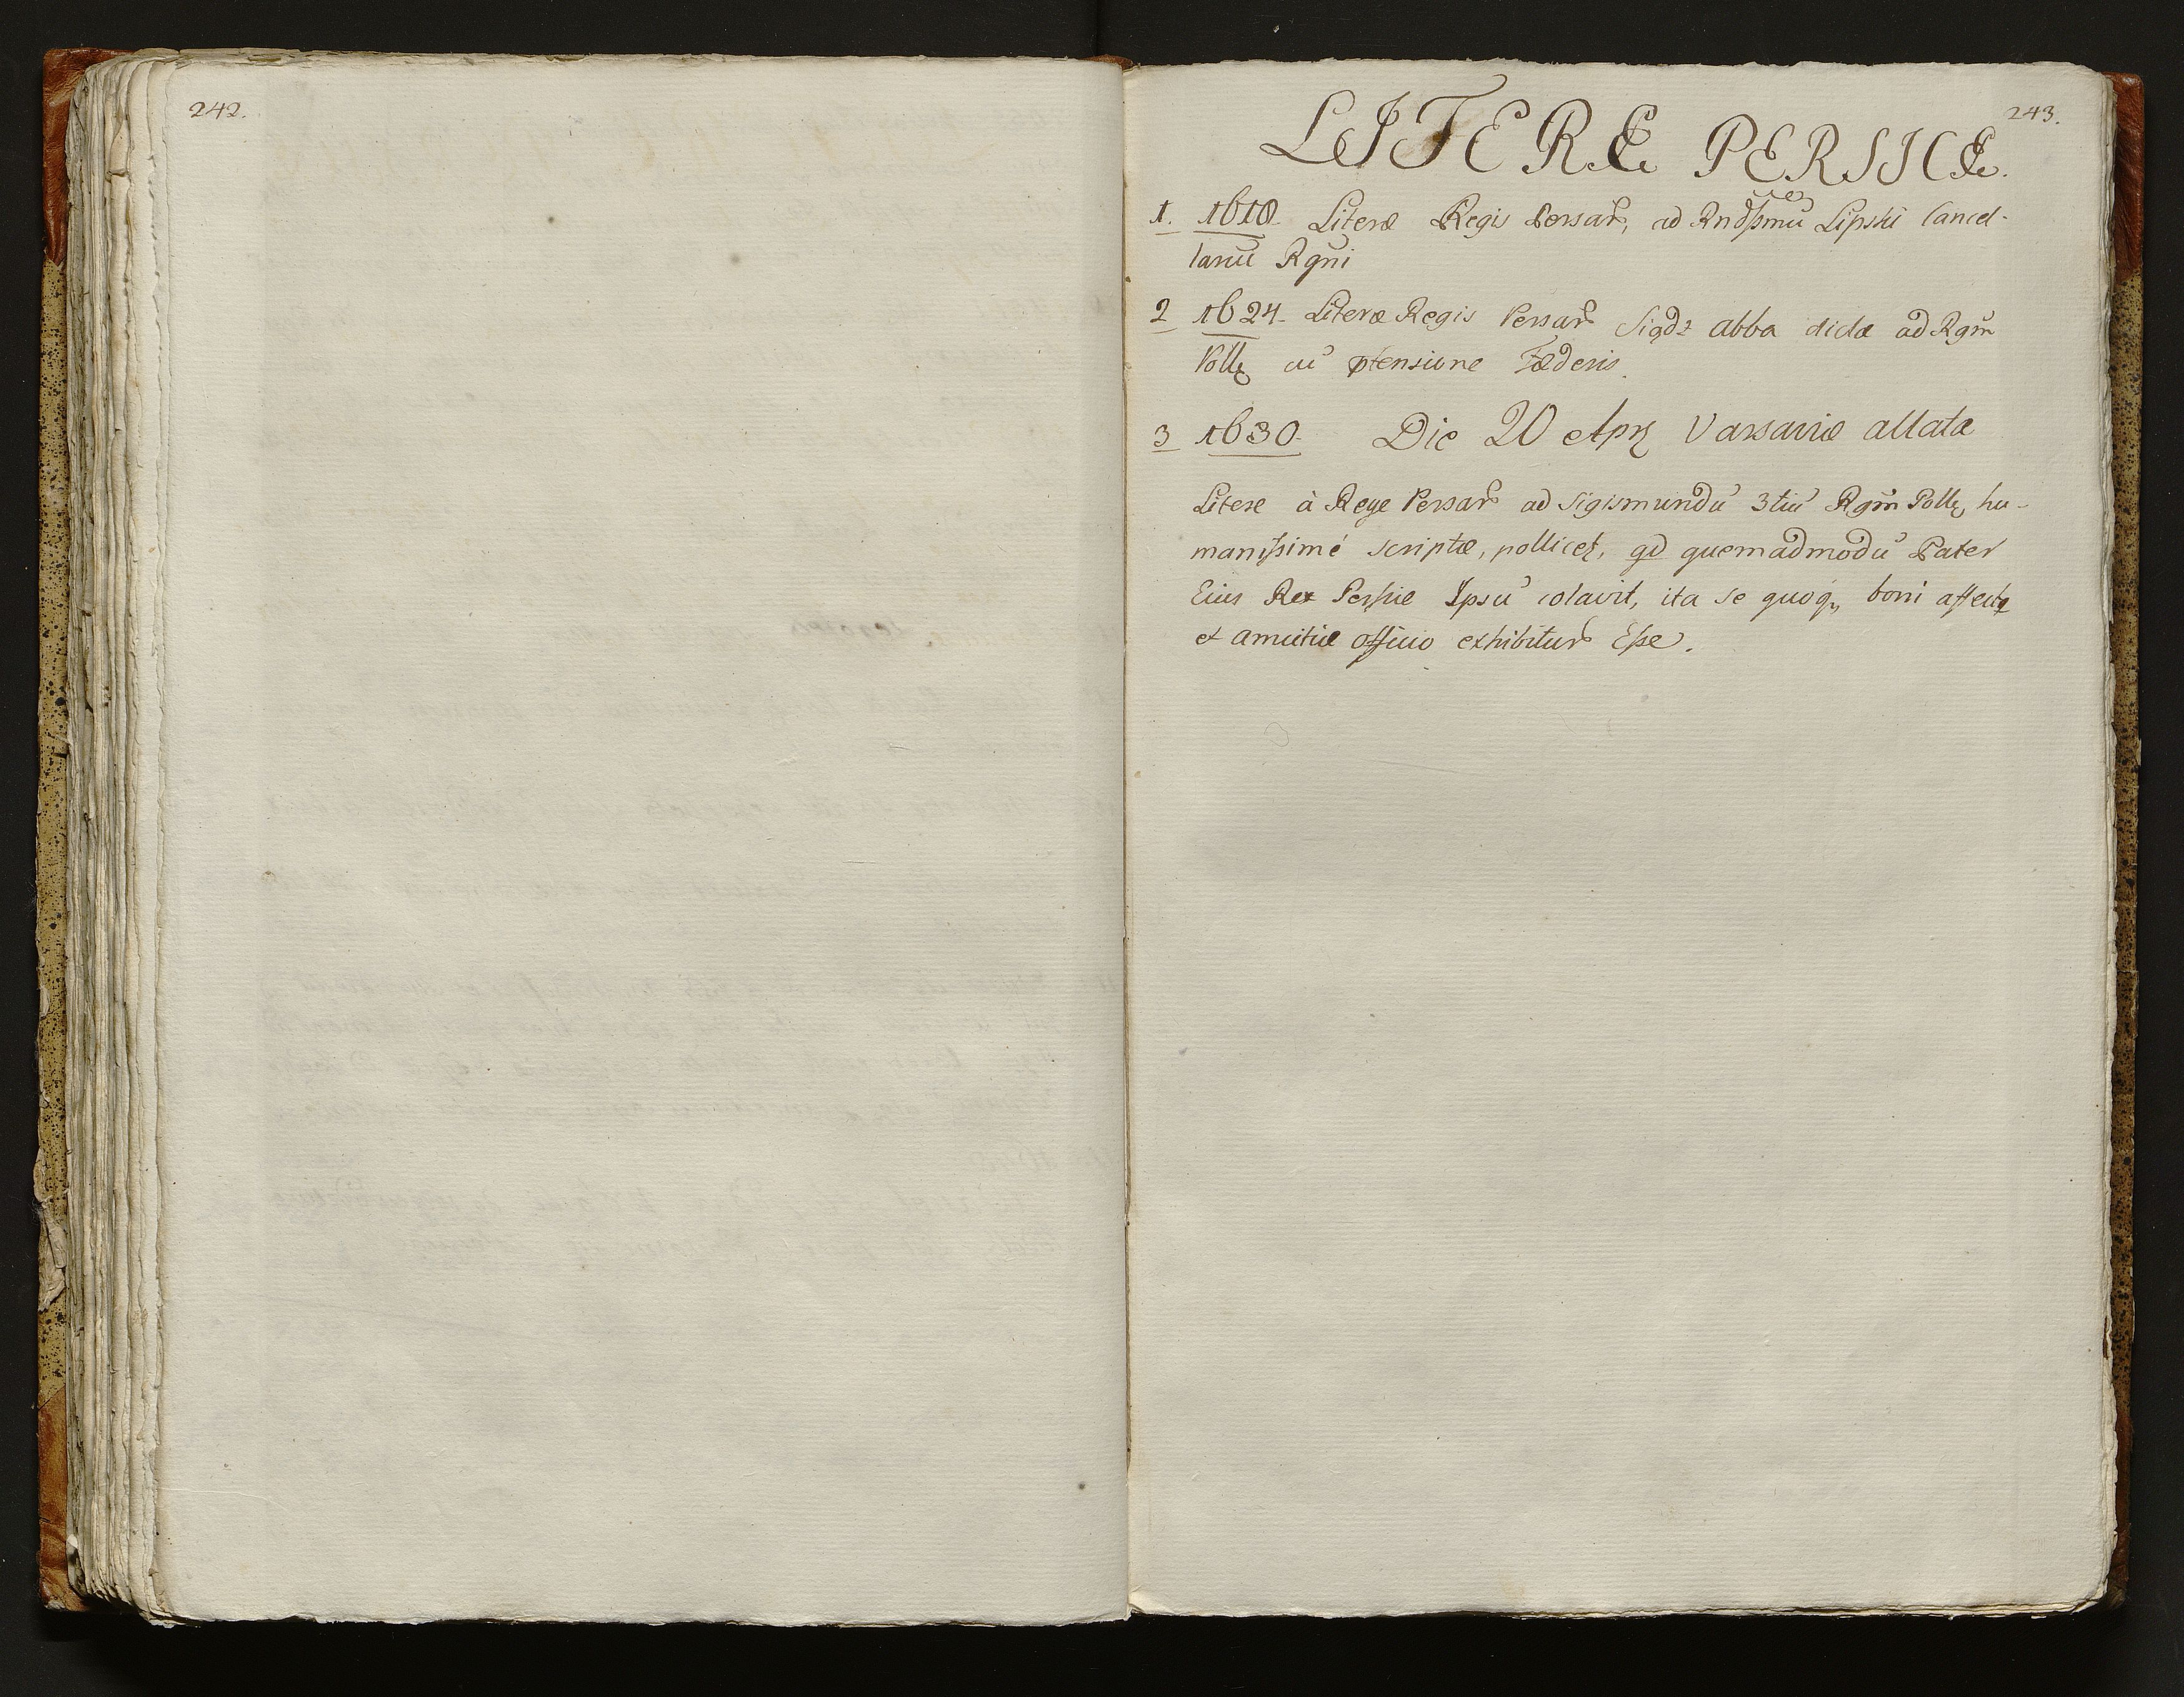 242.
243.
LITERÆ PERSICÆ.
1. 1618. Literæ Regis Persar, ad Rndssmū Lipski Cancel-
lariū Rgni
2 1624. Literæ Regis Persar Abba ad Rgm
Pollę cū ptensione Fæderis.
3 1630. Die 20 Apr Varsaviæ allatæ
Litere à Rege Persar ad Sigismundū 3tiū Rgm Pollę, hu-
manissimé scriptæ, pollicet, qd quemadmodū Pater
Eius Rex Persiæ Ipsū colavit, ita se quoq, boni affectq
et amicitiæ officio exhibitur Esse.